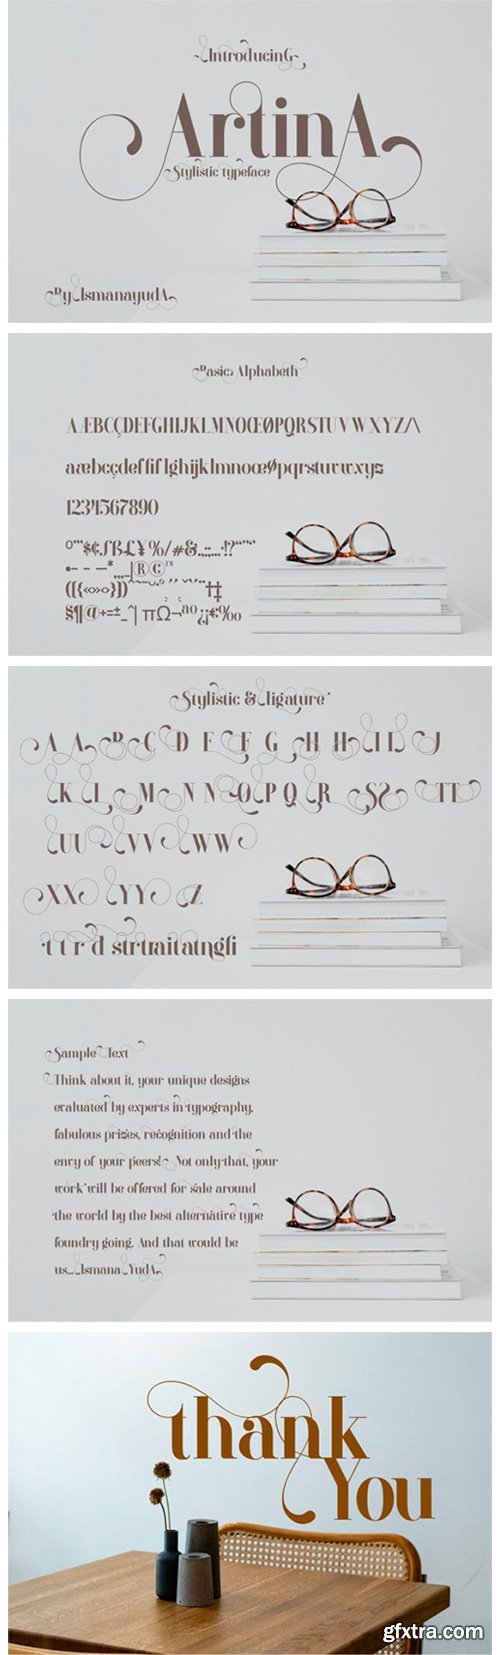 ~IntroducinG~
ArtinA
Stylistic typeface
By IsmanayudA
Basic Alphabeth
AÆBCÇDEFGHIJKLMNOŒØPQRSTUVWXYZ/\
aæbcçdeffiflghijklmnoœøpqrstuvwxyz
1234567890
Stylistic & ligature
A A B C D E F G H H I I J
K L M N N O P Q R S S TT
UU VV WW
XX YY Z
t t r d strtraitatngfi
Sample Text
Think about it, your unique designs
evaluated by experts in typography,
fabulous prizes, recognition and the
envy of your peers! Not only that, your
work will be offered for sale around
the world by the best alternative type
foundry going. And that would be
us...Ismana YudA
thank
You
gfxtra.com